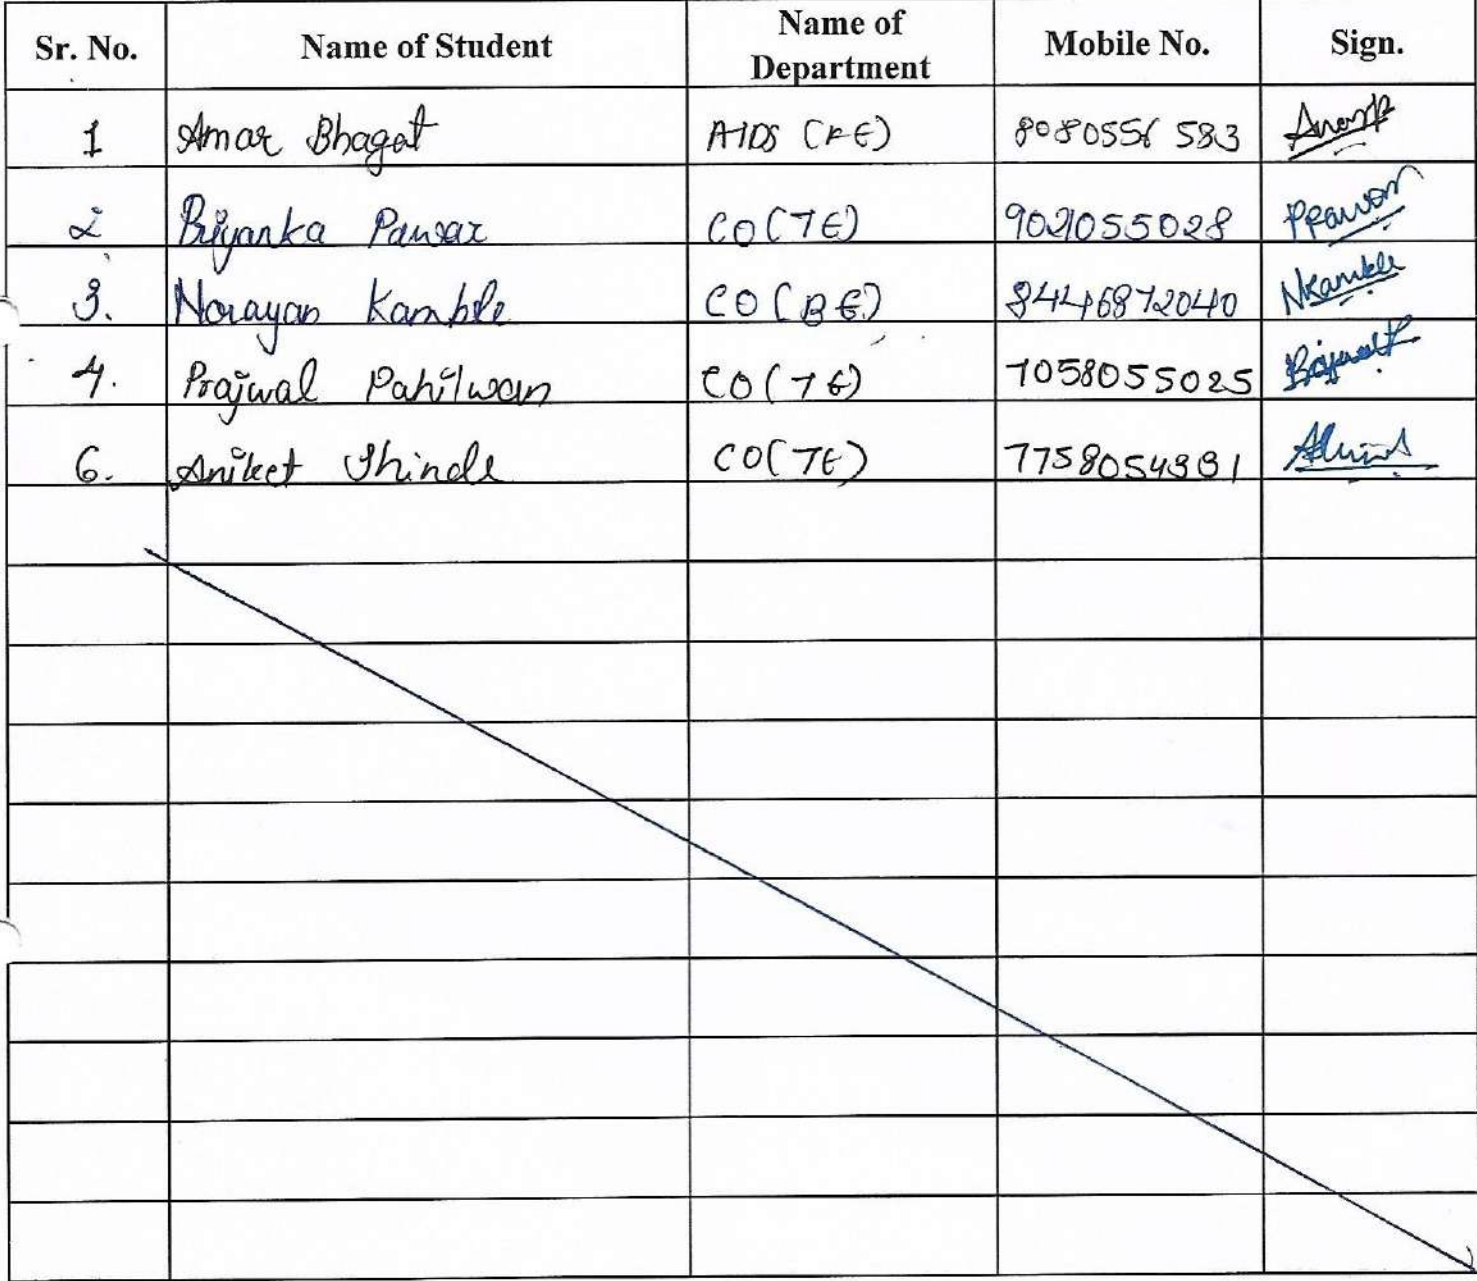 Sr. No. Name of Student Name of Department Mobile No. Sign.
1 Amar Bhagat AIDS (FE) 8080556583
2 Priyanka Pawar CO(TE) 9021055028 PPawar
3. Narayan Kamble CO(BE) 8446872040 NKamble
4. Prajwal Pahilwan CO(TE) 7058055025
6. Aniket Shinde CO(TE)